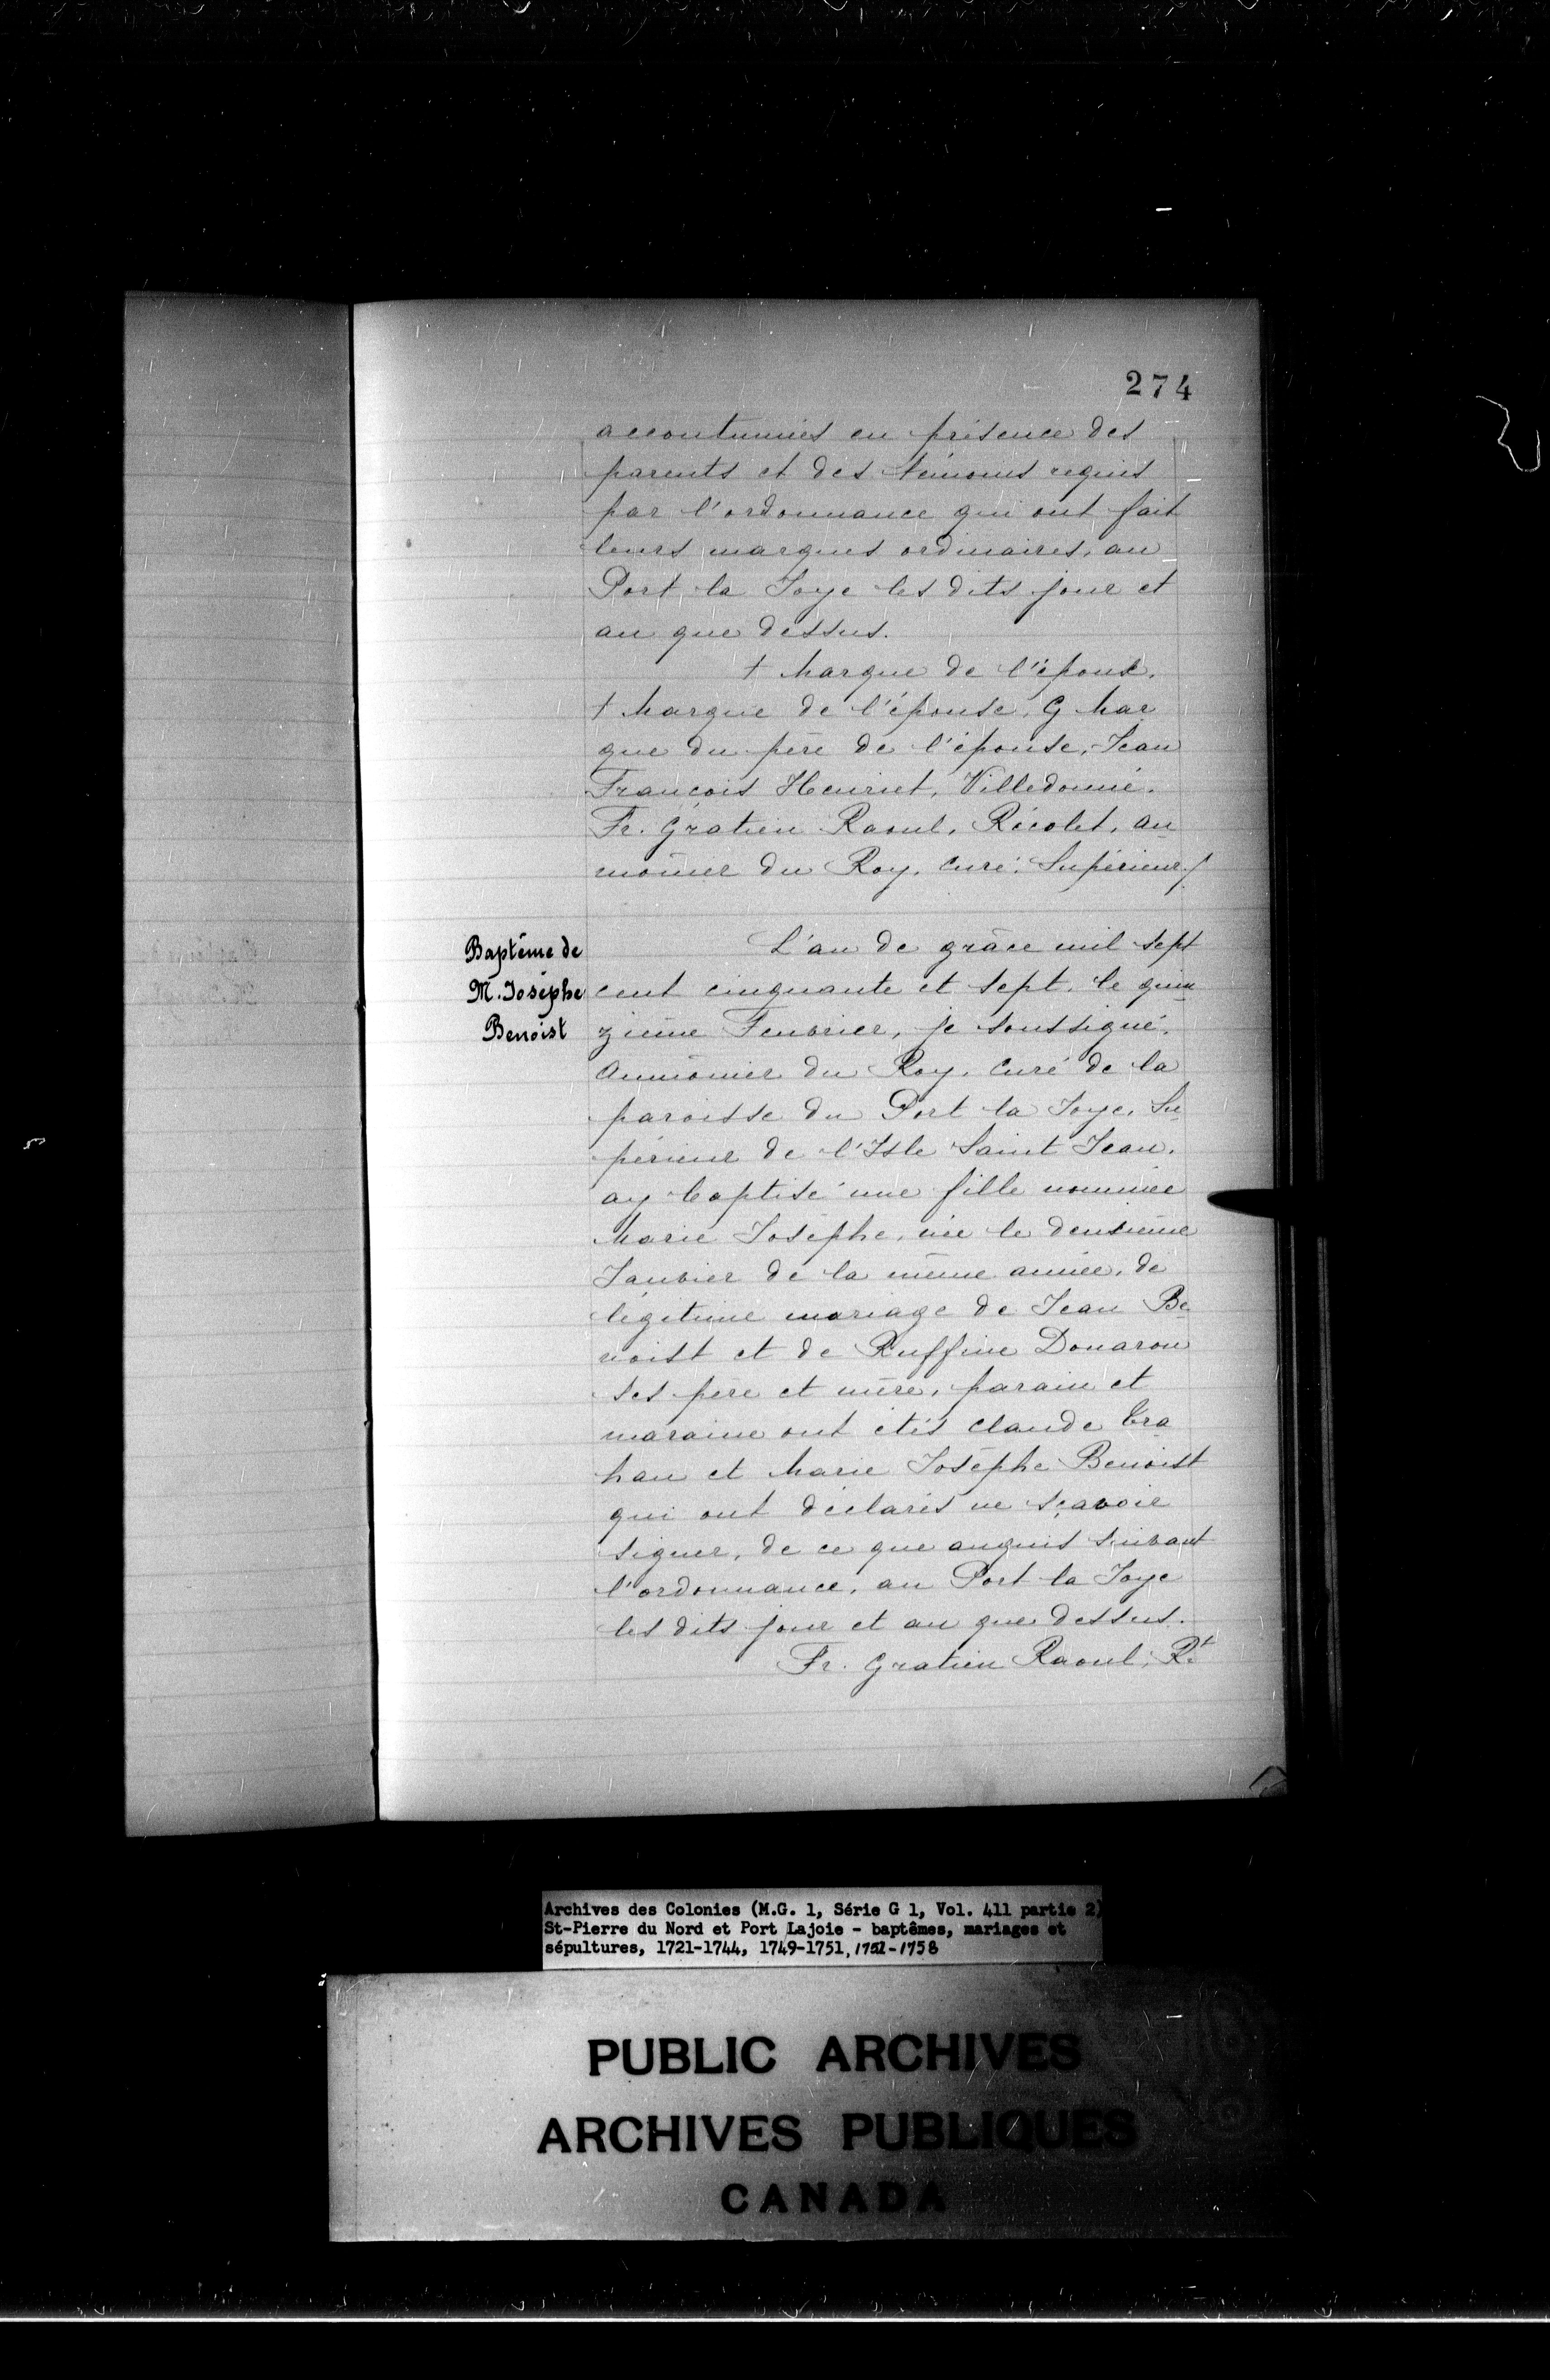 274
accoutumées en présence des
parents et des témoins requis
par l'ordonnance qui ont fait
leurs marques ordinaires, au
Port la Joye les dits jour et
an que dessus.
† Marque de l'époux.
† Marque de l'épouse, G Mar
que du père de l'épouse, Jean
François Henriet, Villedonné.
Fr. Gratien Raoul, Récolet, au
mônier du Roy, curé, Supérieur./
Baptême de
M. Josèphe
Benoist
L'an de grâce mil sept
cent cinquante et sept, le quin
zième Feuvrier, je soussigné,
Aumônier du Roy, curé de la
paroisse du Port la Joye, Su
périeur de l'Isle Saint Jean,
ay baptisé une fille nommée
Marie Josèphe, née le deuxième
Janvier de la même année, de
légitime mariage de Jean Be
noist et de Ruffine Douaron
ses père et mère, parain et
maraine ont étés Claude Tra
han et Marie Josèphe Benoist
qui ont déclarés ne sçavoir
signer, de ce que anquis suivant
l'ordonnance, au Port la Joye
les dits jour et an que dessus.
Fr. Gratien Raoul, Rt
Archives des Colonies (M.G. 1, Série G 1, Vol. 411 partie 2)
St-Pierre du Nord et Port Lajoie - baptêmes, mariages et
sépultures, 1721-1744, 1749-1751, 1752-1758
PUBLIC ARCHIVES
ARCHIVES PUBLIQUES
CANADA